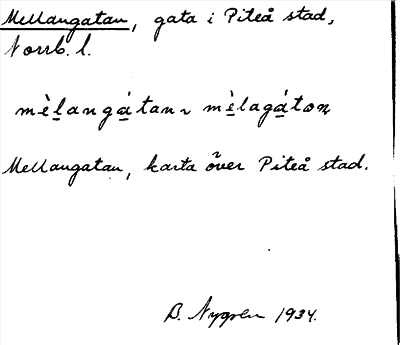 Mellangatan, gata i Piteå stad,
Norrb. l.
mè̱langá̱tan ~ mè̱lagá̱ton
Mellangatan, karta över Piteå stad.
B. Nygren 1934.